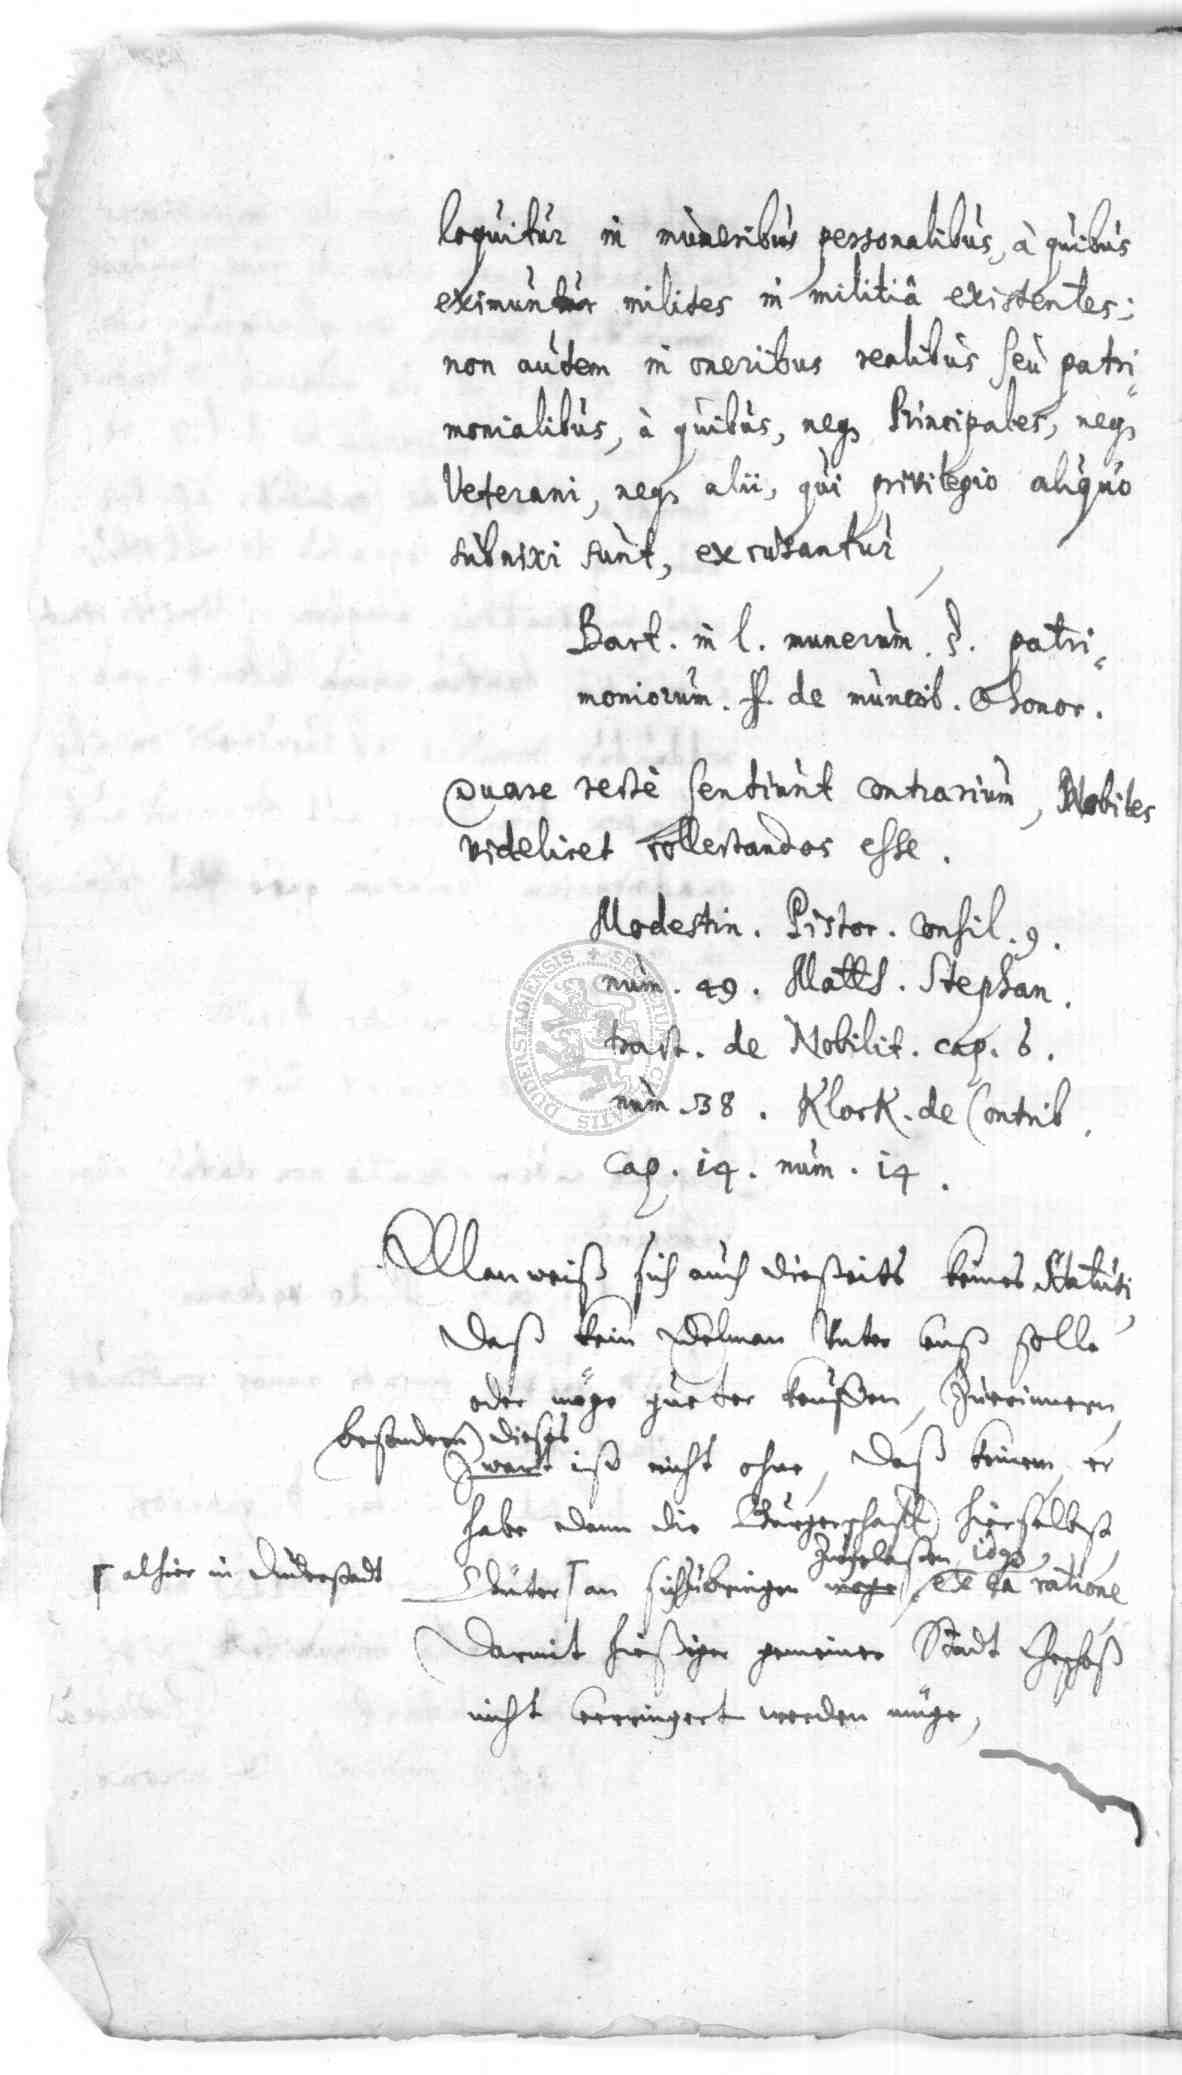 loquitur in muneribus personalibus, à quibus
eximuntur milites in militiâ existentes;
non autem in oneribus realibus seu patri„
monialibus, à quibus, neq, Principales, neq,
Veterani, neq, alii, qui privilegio aliquo
subnixi sunt, excusantur,
Bart. in l. munerum. §. patri„
moniorum. ff. de munerib. & honor.
Quare rectè sentiunt contrarium, Nobiles
videlicet collectandos esse.
Modestin. Pistor. Consil. 9.
num. 49. Matth. Stephan.
tract. de Nobilit. cap. 6.
num. 38. Klock. de Contrib.
Cap. 14. num. 14.
DUDERSTADIENSIS
Man weiß sich auch dießeits keines Statuti,
daß kein Edelman unter
oder möge güeter keuffen, Zuerinnern,
besondern dieses
Zwart iß nicht ohne, daß keinem, er
habe dann die Bürgerschafft hierselbst
Zugelaßen,
⌈ alhier in Duderstadt
Güeter⌈ an sich Zubringen möge, ex eâ ratione
Darmit hießiger gemeiner Stadt Geschoß
nicht verringert werden müge,